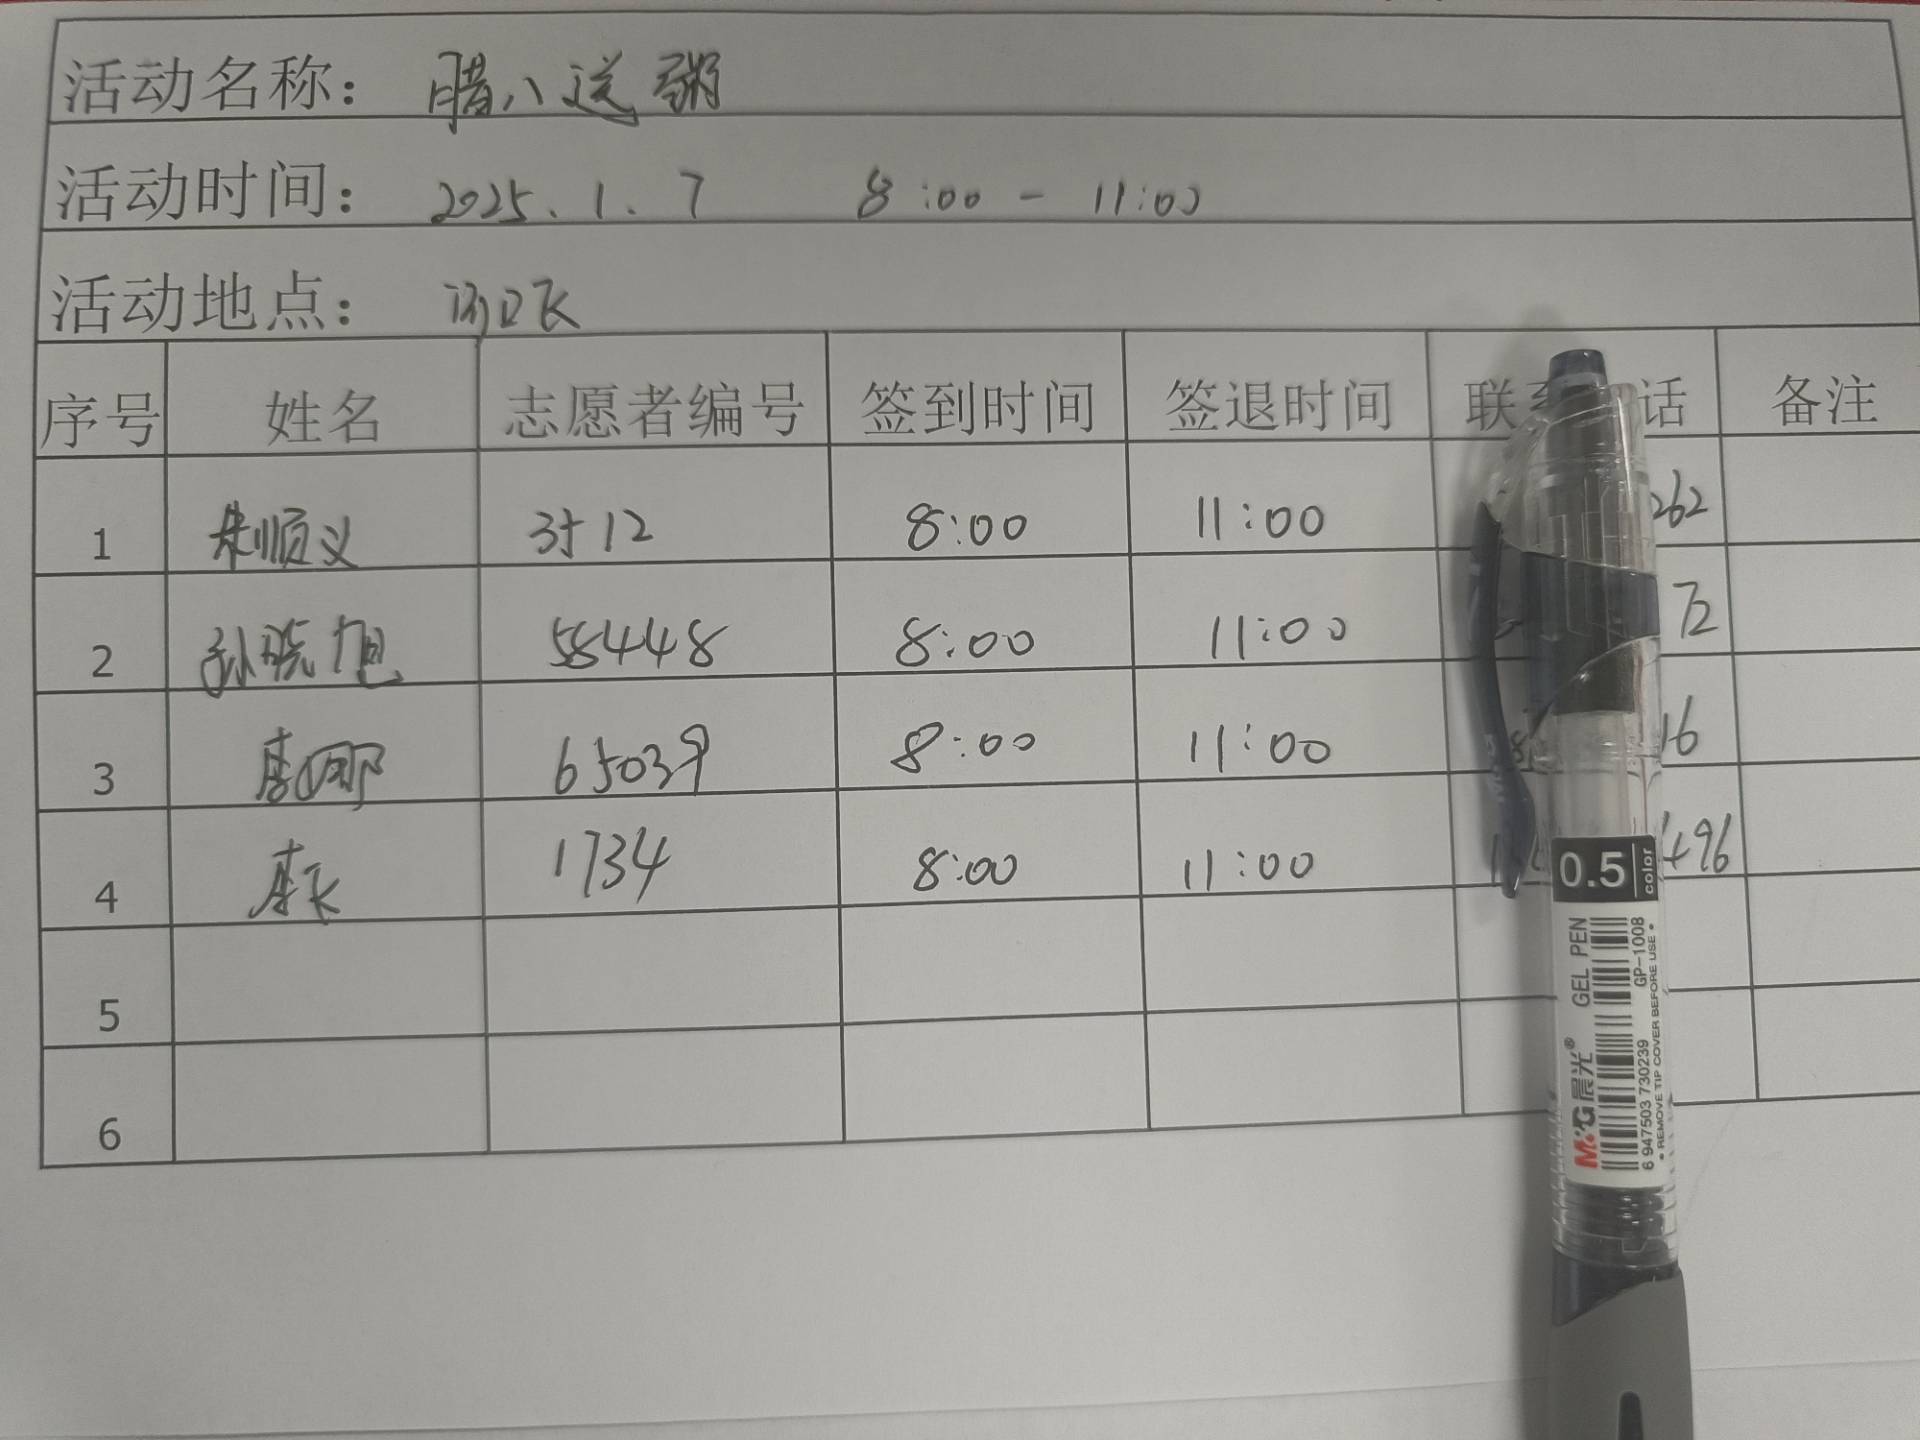 活动名称： 腊八送粥
活动时间： 2025.1.7 8:00 - 11:00
活动地点：
序号 姓名 志愿者编号 签到时间 签退时间 联 话 备注
1 朱顺义 3512 8:00 11:00 262
2 孙晓旭 58448 8:00 11:00 72
3 李娜 65039 8:00 11:00 16
4 1734 8:00 11:00 496
5
6
0.5 color
M&G晨光® GEL PEN GP-1008
6 947503 730239
• REMOVE TIP COVER BEFORE USE •